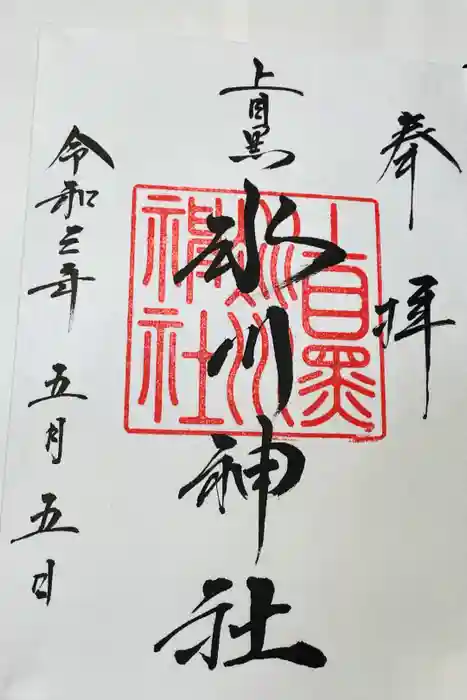 奉拝
上目黒
氷川神社
上目黒
氷川
神社
令和三年
五月
五日